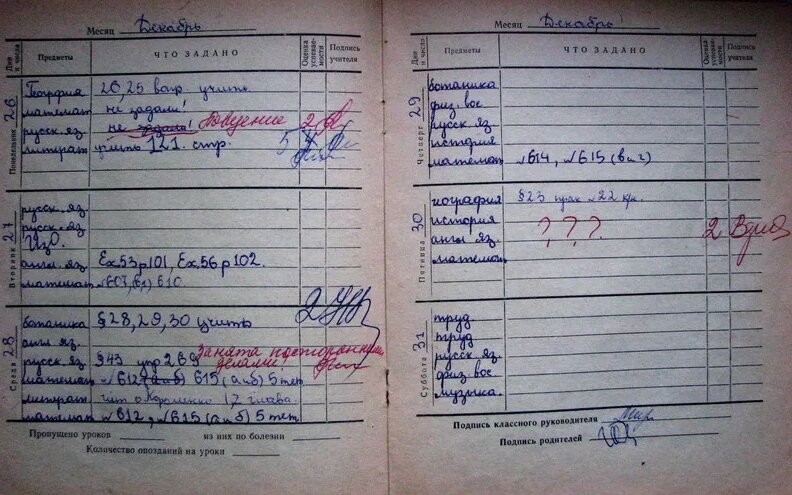 Месяц Декабрь
Дни и числа Предметы ЧТО ЗАДАНО Оценка успевае- мости Подпись учителя
Понедельник 26
География 26, 25 вопр. учить
математ не задали!
русск. яз. не задали! Поведение 2
литерат учить 121. стр. 5
Вторник 27
русск. яз.
русск. яз.
ИзО.
англ. яз. Ex. 53 p 101, Ex. 56 p 102.
математ №607, 61) 610.
Среда 28
ботаника § 28, 29, 30 учить 2
англ яз.
русск. яз. § 43 упр 269 Занята посторонними делами!
математ №612 (а и б) 615 (а и б) 5 тет.
литерат чит о Короленко 1,2 глава.
математ №612, №615 (а и б) 5 тет.
Пропущено уроков из них по болезни
Количество опозданий на уроки
Месяц Декабрь!
Дни и числа Предметы ЧТО ЗАДАНО Оценка успевае- мости Подпись учителя
Четверг 29
ботаника
физ. вос.
русск. яз.
история
математ №614, №615 (в и г)
Пятница 30
география § 23 прак № 22 кон.
история
англ яз. ? ? ? 2
математ
Суббота 31
труд.
труд.
русск. яз.
физ. вос.
музыка.
Подпись классного руководителя
Подпись родителей